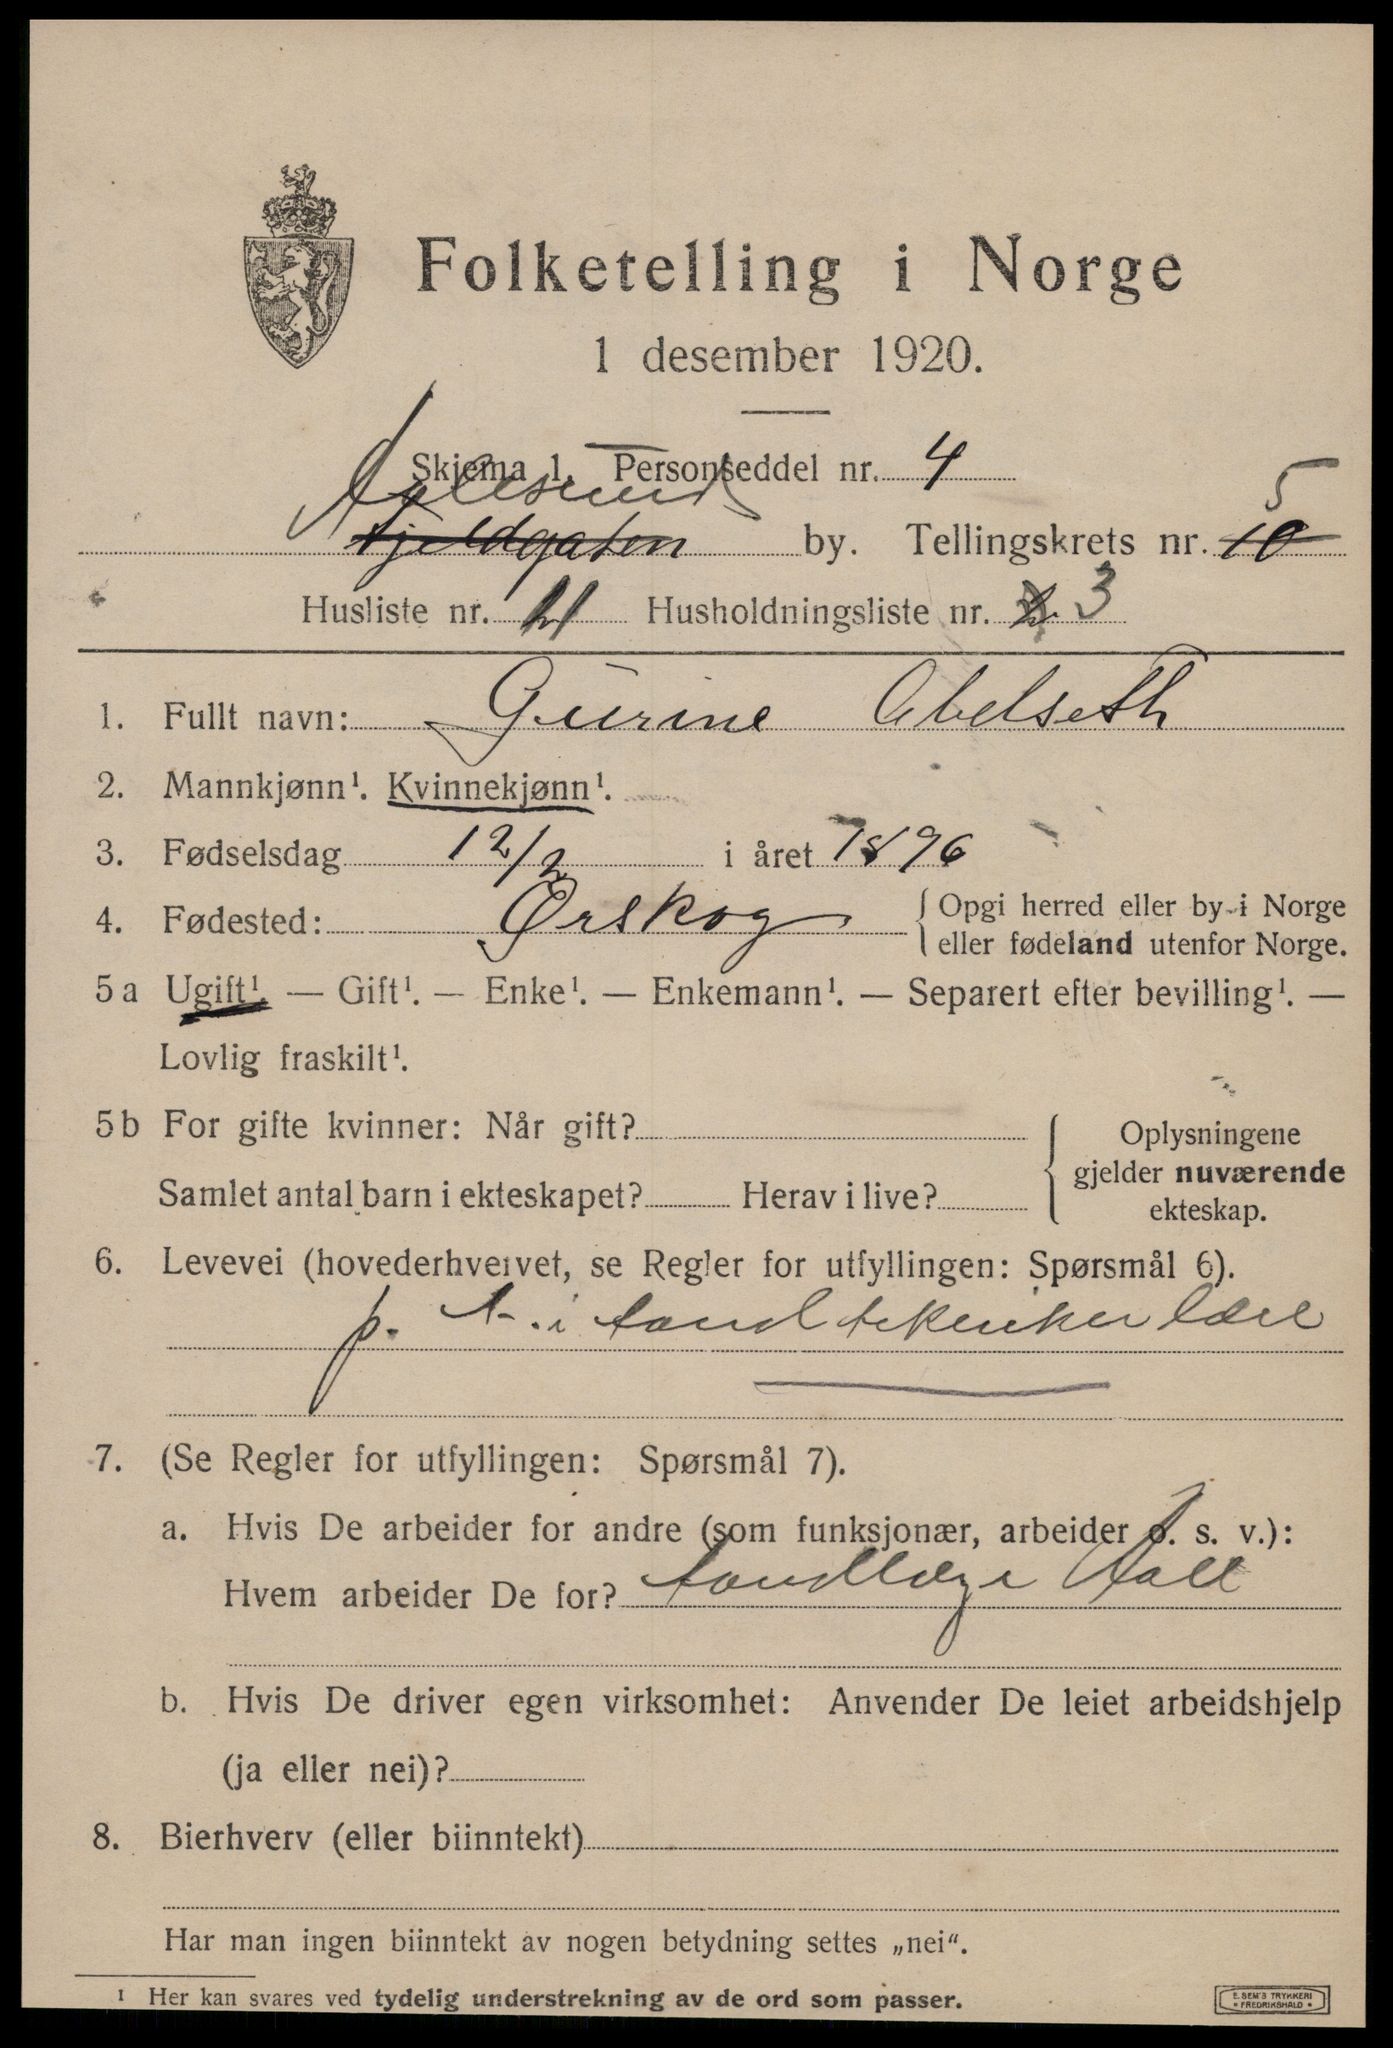 Folketelling i Norge
1 desember 1920.
Skjema 1. Personseddel nr. 4
Aalesund
Fjeldgaten by. Tellingskrets nr. 10 5
Husliste nr. 21 Husholdningsliste nr. 2 3
1. Fullt navn: Gurine Abelseth
2. Mannkjønn¹. Kvinnekjønn¹.
3. Fødselsdag 12/2 i året 1896
4. Fødested: Ørskog { Opgi herred eller by i Norge
eller fødeland utenfor Norge.
5a Ugift¹. — Gift¹. — Enke¹. — Enkemann¹. — Separert efter bevilling¹. —
Lovlig fraskilt¹.
5b For gifte kvinner: Når gift?
Samlet antal barn i ekteskapet? Herav i live?
{ Oplysningene
gjelder nuværende
ekteskap.
6. Levevei (hovederhvervet, se Regler for utfyllingen: Spørsmål 6).
p. t. i tandtekniker lære
7. (Se Regler for utfyllingen: Spørsmål 7).
a. Hvis De arbeider for andre (som funksjonær, arbeider o. s. v.):
Hvem arbeider De for? tandlæge Aall
b. Hvis De driver egen virksomhet: Anvender De leiet arbeidshjelp
(ja eller nei)?
8. Bierhverv (eller biinntekt)
Har man ingen biinntekt av nogen betydning settes „nei“.
¹ Her kan svares ved tydelig understrekning av de ord som passer.
E. SEM'S TRYKKERI
• FREDRIKSHALD •